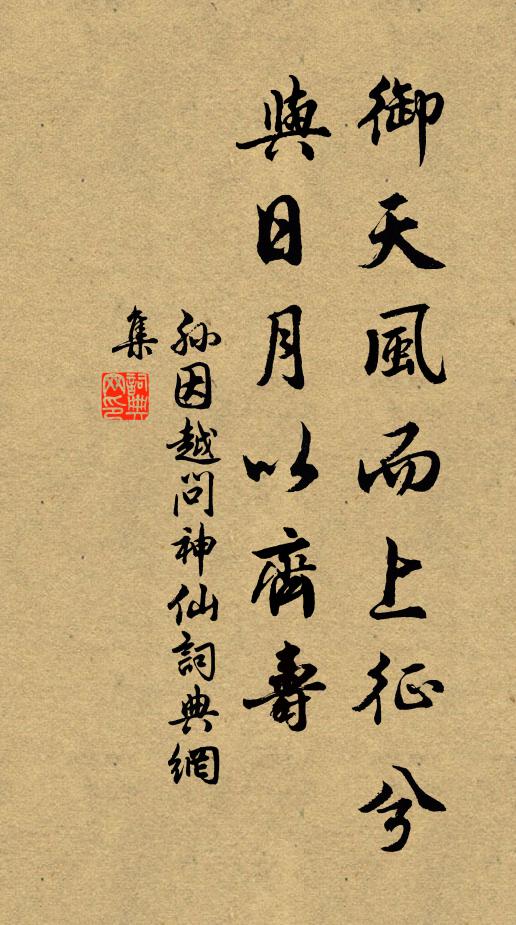 御天風而上征兮
與日月以齊壽
孫因越問神仙詞典網
集
詞典
网印